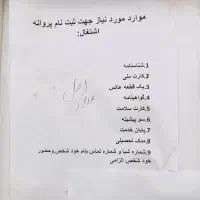 موارد مورد نیاز جهت ثبت نام پروانه
اشتغال:
1.شناسنامه
2.کارت ملی
3.یک قطعه عکس
4.گواهینامه
5.کارت سلامت
6.سو پیشینه
7.پایان خدمت
8.مدک تحصیلی
9.شماره شبا و شماره تماس بنام خود شخص وحضور
خود شخص الزامی